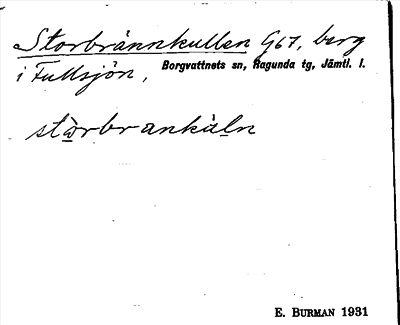 Storbrännkullen G67, berg
i Fullsjön, Borgvattnets sn, Ragunda tg, Jämtl. l.
stòrbrankàln
E. BURMAN 1931